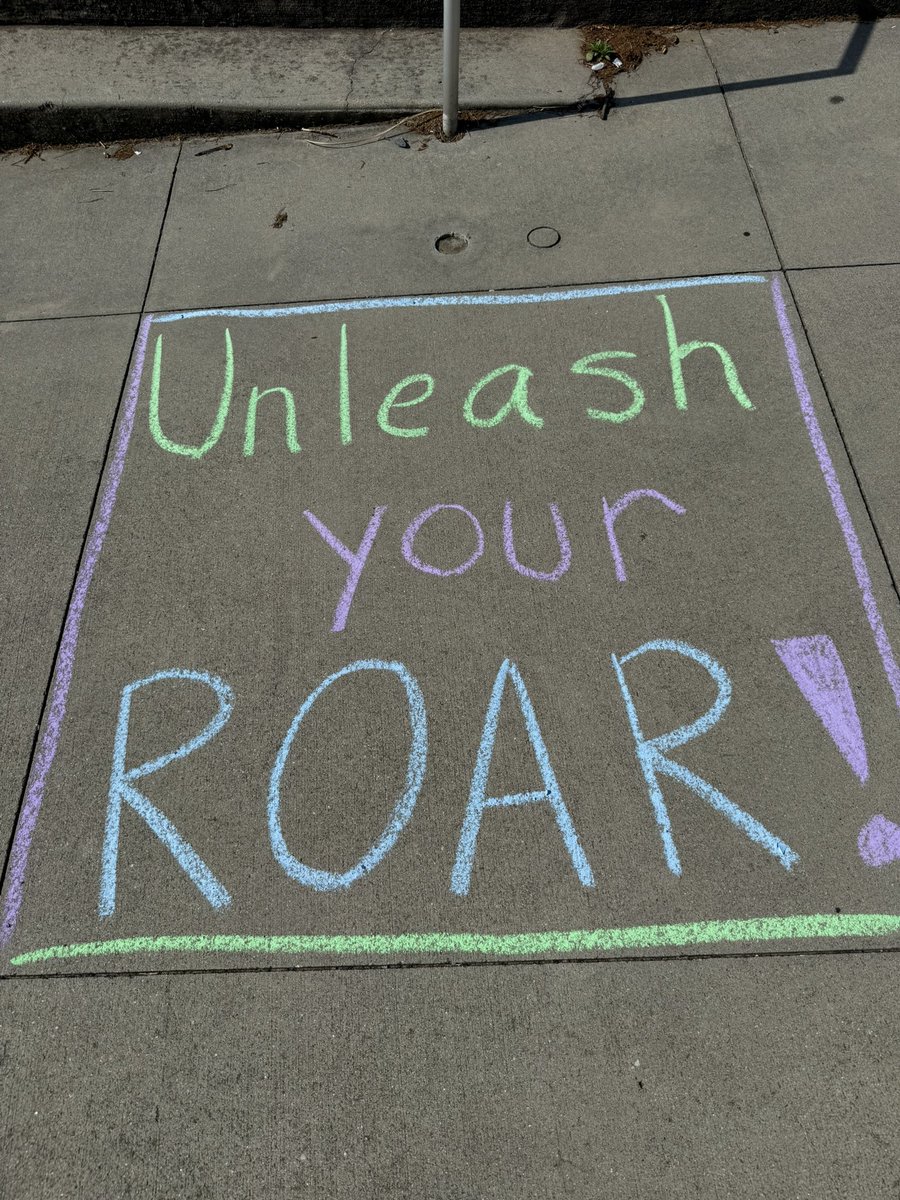 Unleash
your
ROAR!